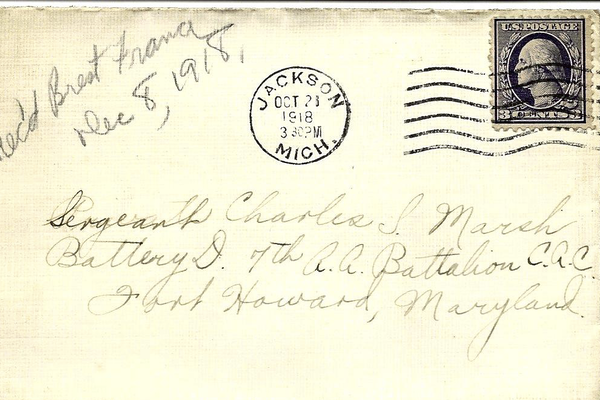 Rec'd Brest France
Dec 8, 1918,
JACKSON
OCT 21
1918
3 30 PM
MICH.
U.S. POSTAGE
3 CENTS 3
Sergeant Charles S. Marsh
Battery D. 7th A.A. Battalion C.A.C.
Fort Howard, Maryland.